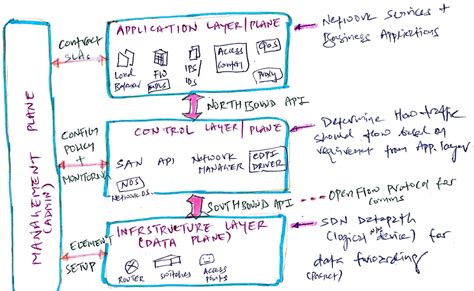 APPLICATION LAYER/PLANE
Network Services +
Business Applications
Contract
SLAs
Load
Balancer
FW
IPS/
IDS
Access
Control
QoS
MPLS
Proxy
NORTHBOUND API
MANAGEMENT PLANE
(ADMIN)
CONTROL LAYER/PLANE
CONFIG
POLICY
+
MONITORING
SAN API NETWORK
MANAGER
DRIVER
NOS
NETWORK OS
Determine How traffic
should flow based on
requirement from App layer
SOUTHBOUND API
OPENFLOW PROTOCOL for
comms
INFRSTRUCTURE LAYER
(DATA PLANE)
ELEMENT
SETUP
ROUTER
Switches
Access
Points
SDN Datapath
(logical device) for
data forwarding
(packet)